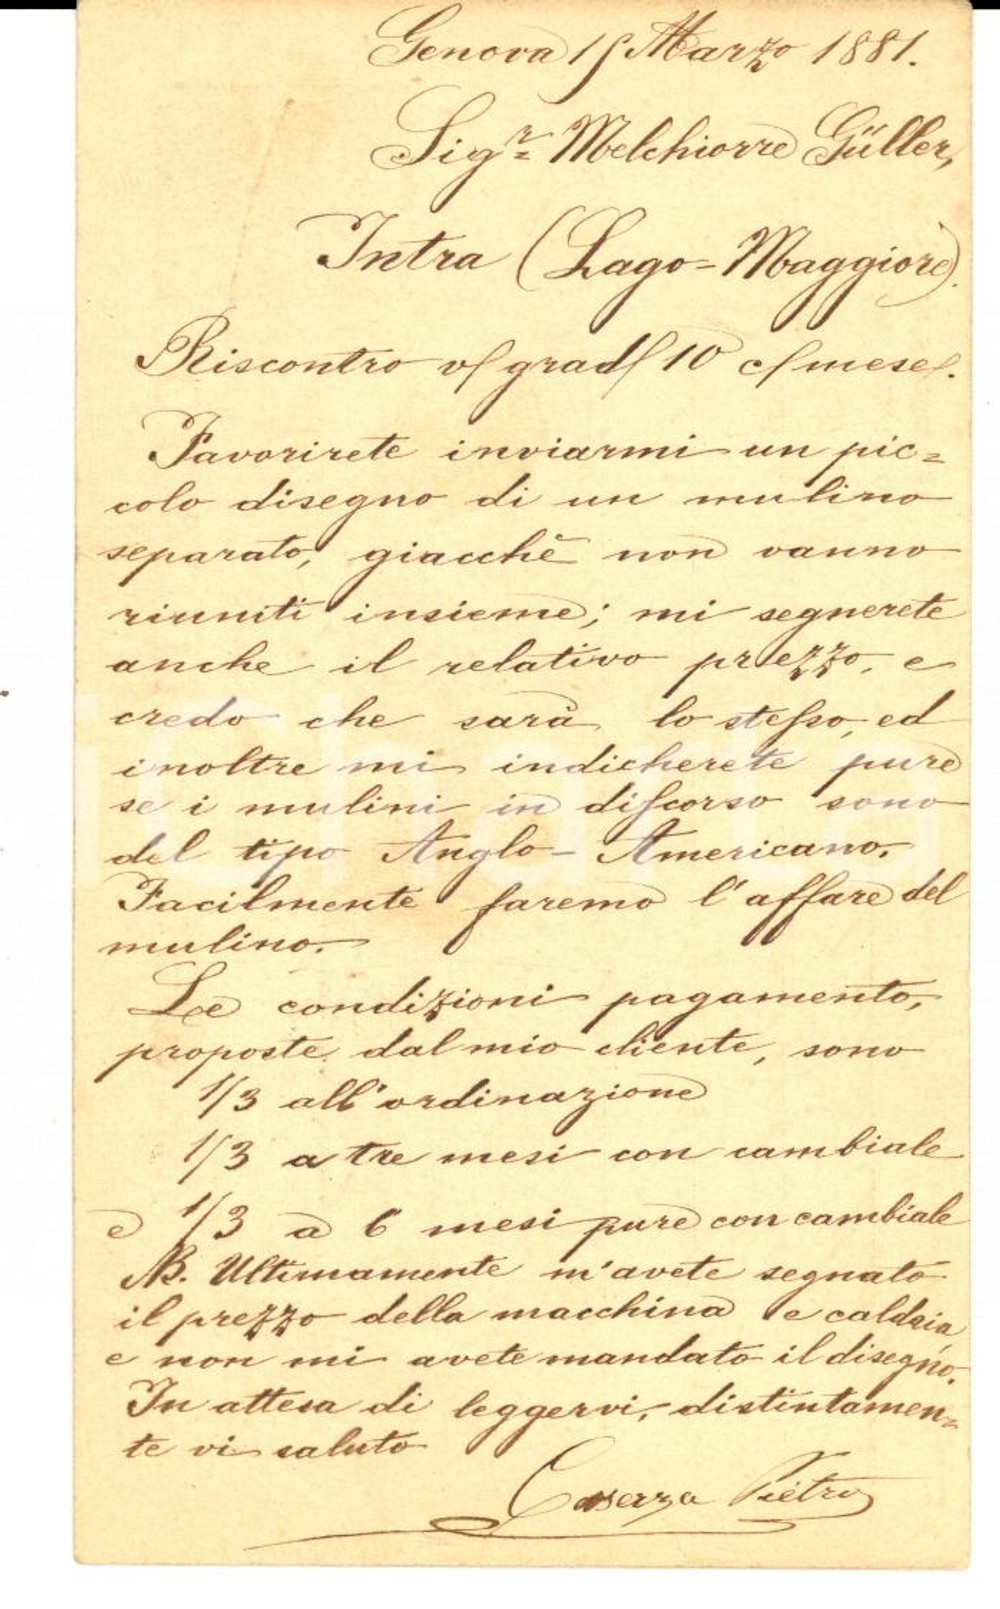 Genova 15 Marzo 1881.
Sigr. Melchiorre Güller,
Intra (Lago-Maggiore).
Riscontro v/ grad/ 10 c/ mese/.
Favorirete inviarmi un pic=
colo disegno di un mulino
separato, giacchè non vanno
riuniti insieme; mi segnerete
anche il relativo prezzo, e
credo che sarà lo stesso, ed
inoltre mi indicherete pure
se i mulini in discorso sono
del tipo Anglo-Americano.
Facilmente faremo l'affare del
mulino.
Le condizioni pagamento,
proposte dal mio cliente, sono
1/3 all'ordinazione
1/3 a tre mesi con cambiale
e 1/3 a 6 mesi pure con cambiale
NB. Ultimamente m'avete segnato
il prezzo della macchina e caldaia
e non mi avete mandato il disegno.
In attesa di leggervi, distintamen=
te vi saluto
Caserza Pietro